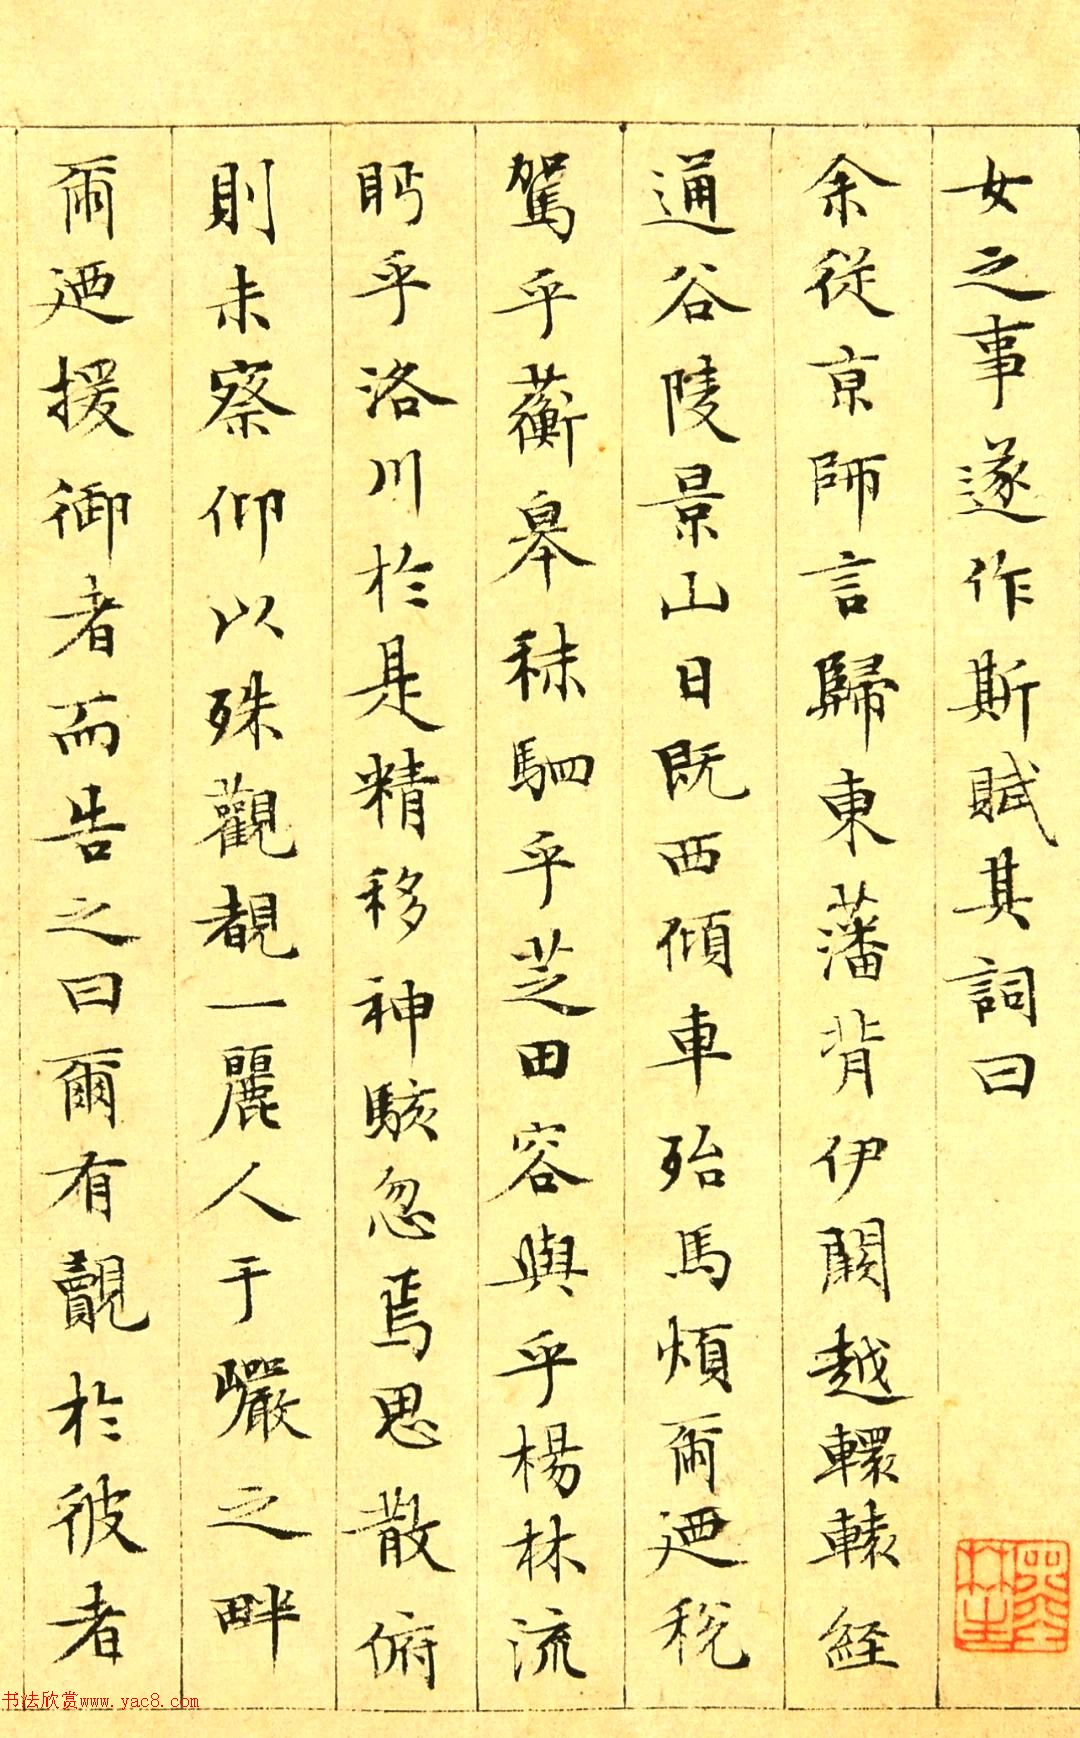 女之事遂作斯賦其詞曰
余從京師言歸東藩背伊闕越轘轅經
通谷陵景山日既西傾車殆馬煩爾迺稅
駕乎蘅皋秣駟乎芝田容與乎楊林流
眄乎洛川於是精移神駭忽焉思散俯
則未察仰以殊觀覩一麗人于巖之畔
爾迺援御者而告之曰爾有覿於彼者
书法欣赏www.yac8.com